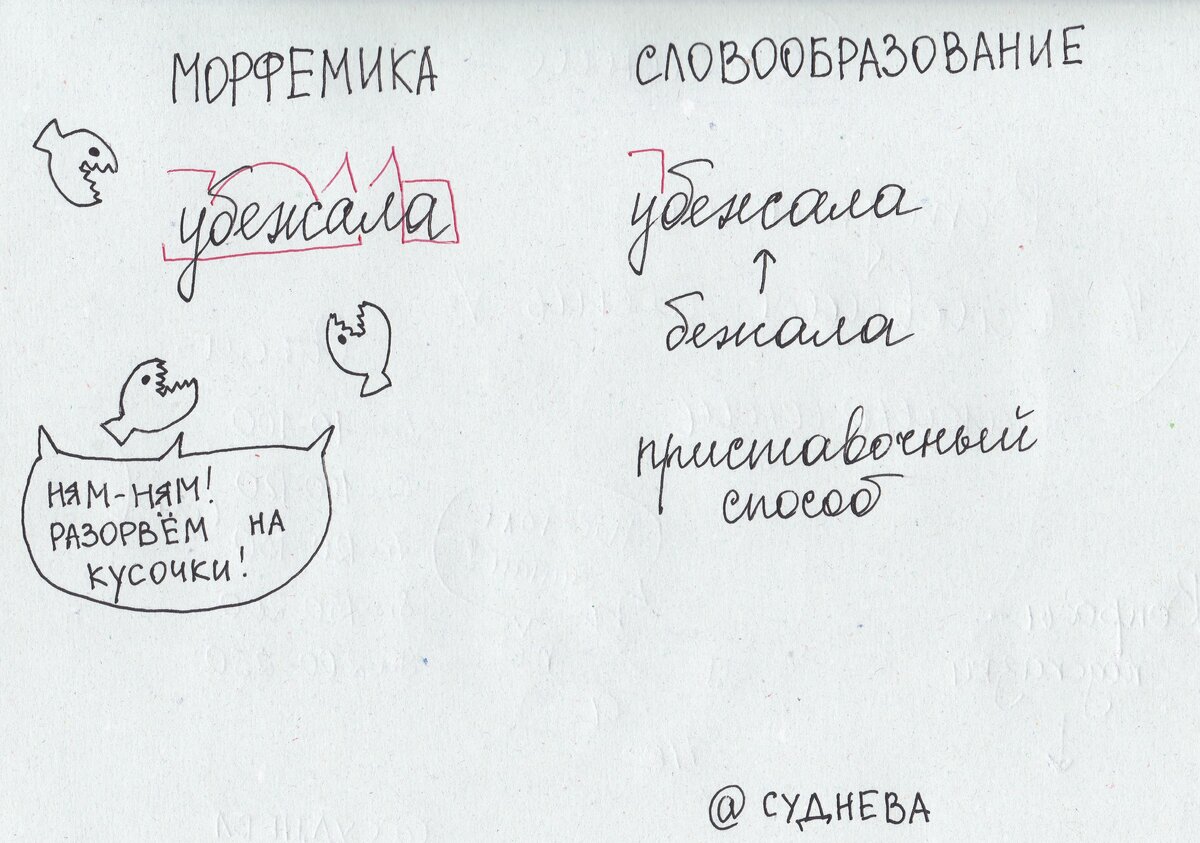 МОРФЕМИКА
убежала
НЯМ-НЯМ!
РАЗОРВЁМ НА
КУСОЧКИ!
СЛОВООБРАЗОВАНИЕ
убежала
↑
бежала
приставочный
способ
@ СУДНЕВА